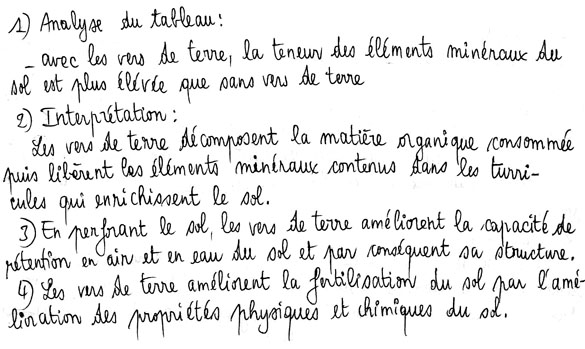 1) Analyse du tableau :
- avec les vers de terre, la teneur des éléments minéraux du
sol est plus élévée que sans vers de terre
2) Interprétation :
Les vers de terre décomposent la matière organique consommée
puis libèrent les éléments minéraux contenus dans les turri-
cules qui enrichissent le sol.
3) En perforant le sol, les vers de terre améliorent la capacité de
rétention en air et en eau du sol et par conséquent sa structure.
4) Les vers de terre améliorent la fertilisation du sol par l'amé-
lioration des propriétés physiques et chimiques du sol.